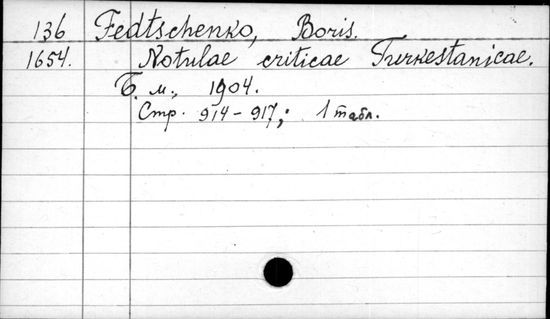 136 Fedtschenko, Boris.
1654. Notulae criticae Turkestanicae.
Б. м., 1904.
Стр. 914-917; 1 табл.